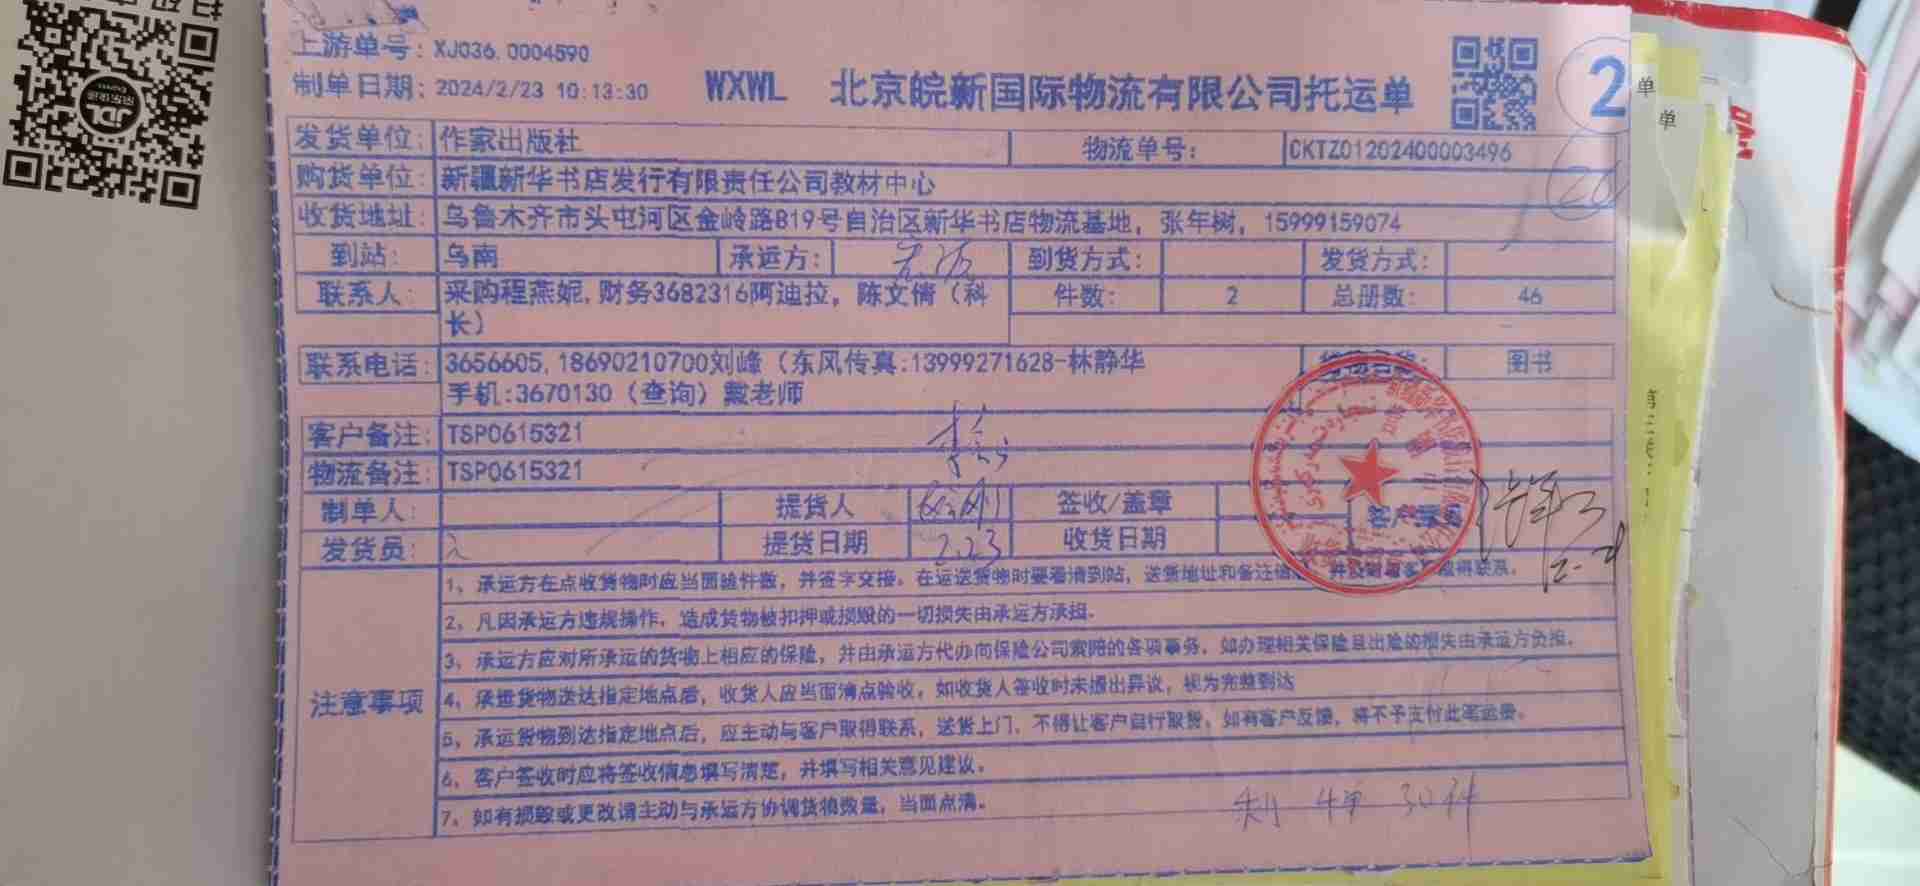 上游单号：XJ036.0004590
制单日期：2024/2/23 10:13:30
WXWL 北京皖新国际物流有限公司托运单
2
发货单位：作家出版社 物流单号：CKTZ01202400003496
购货单位：新疆新华书店发行有限责任公司教材中心
收货地址：乌鲁木齐市头屯河区金岭路819号自治区新华书店物流基地，张年树，15999159074
到站：乌南 承运方： 到货方式： 发货方式：
联系人：采购程燕妮,财务3682316阿迪拉，陈文倩（科长） 件数：2 总册数：46
联系电话：3656605,18690210700刘峰（东风传真:13999271628-林静华 图书
手机:3670130（查询）戴老师
客户备注：TSP0615321
物流备注：TSP0615321
制单人： 提货人 签收/盖章
发货员： 提货日期 2.23 收货日期
注意事项
1、承运方在点收货物时应当面验件数，并签字交接。在运送货物时要看清到站，送货地址和备注信 得联系。
2、凡因承运方违规操作，造成货物被扣押或损毁的一切损失由承运方承担。
3、承运方应对所承运的货物上相应的保险，并由承运方代办向保险公司索赔的各项事务，如办理相关保险且出险的损失由承运方负担。
4、承运货物送达指定地点后，收货人应当面清点验收，如收货人签收时未提出异议，视为完整到达
5、承运货物到达指定地点后，应主动与客户取得联系，送货上门，不得让客户自行取货，如有客户反馈，将不予支付此笔运费。
6、客户签收时应将签收信息填写清楚，并填写相关意见建议。
7、如有损毁或更改请主动与承运方协调货物数量，当面点清。